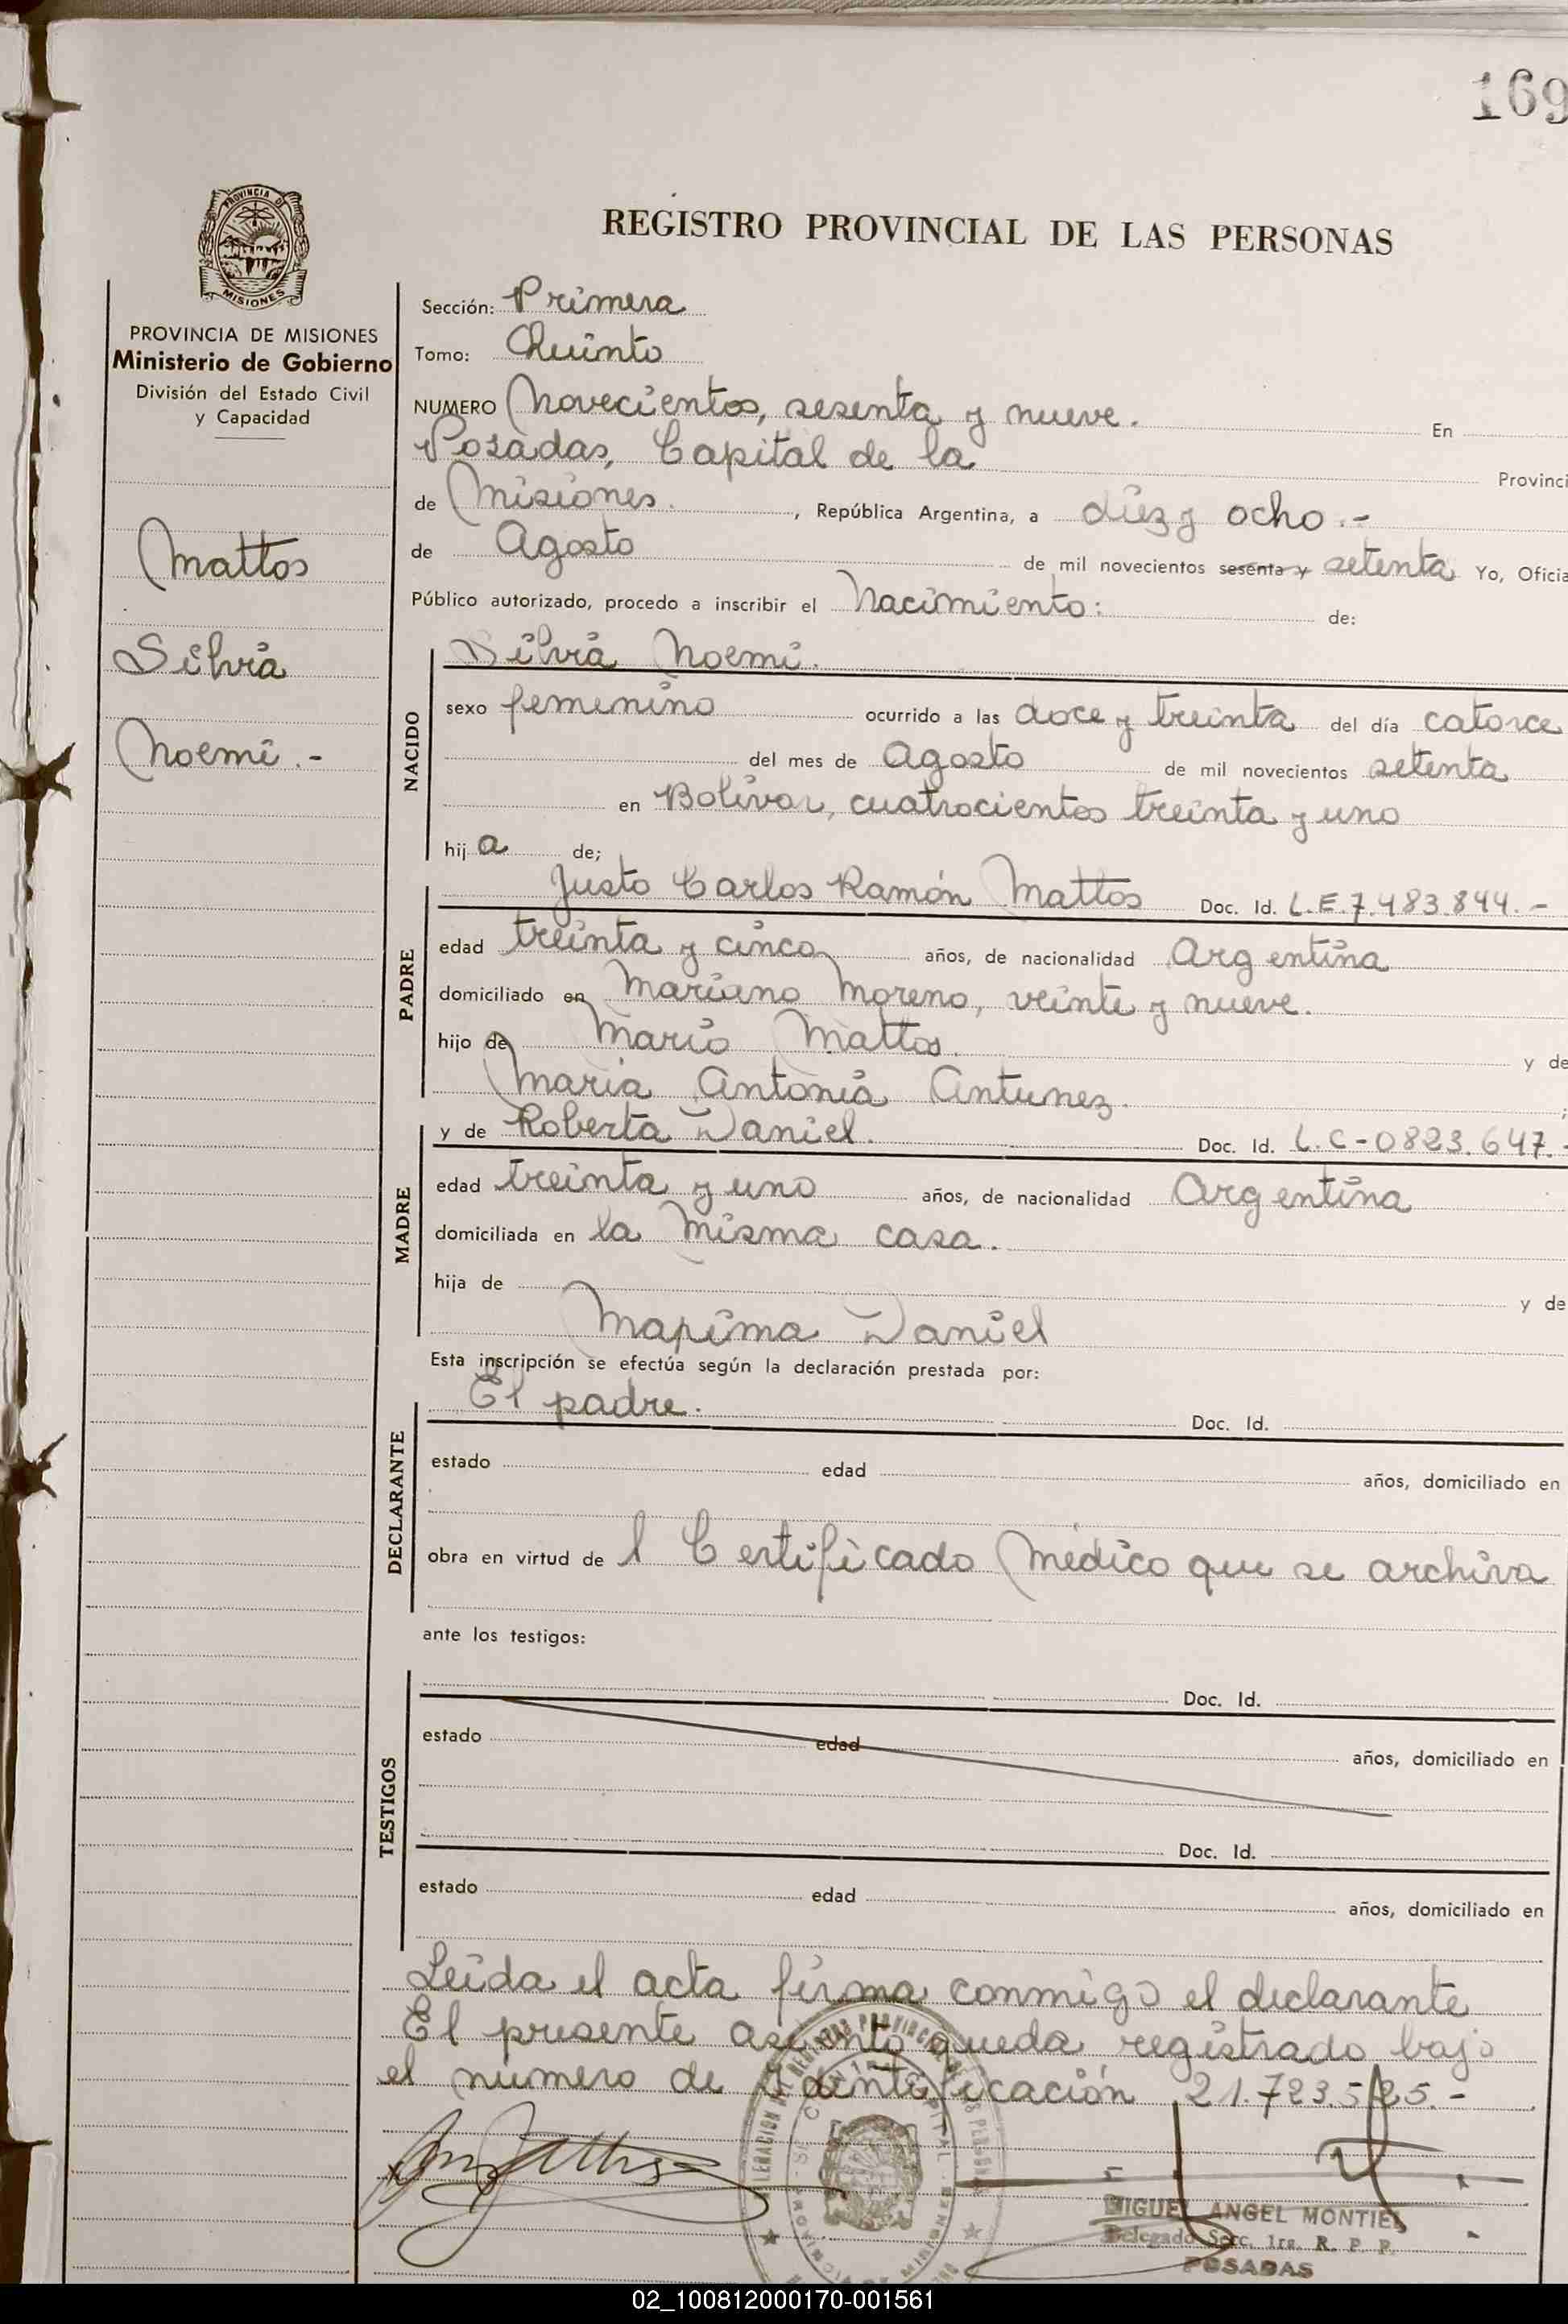 169
PROVINCIA DE
MISIONES
REGISTRO PROVINCIAL DE LAS PERSONAS
PROVINCIA DE MISIONES
Ministerio de Gobierno
División del Estado Civil
y Capacidad
Mattos
Silvia
Noemi.-
Sección: Primera
Tomo: Quinto
NUMERO Novecientos, sesenta y nueve. En
Posadas, Capital de la Provinci
de Misiones. , República Argentina, a diez y ocho.-
de Agosto de mil novecientos sesenta y setenta Yo, Oficia
Público autorizado, procedo a inscribir el Nacimiento: de:
NACIDO
Silvia Noemi.
sexo femenino ocurrido a las doce y treinta del día catorce
del mes de Agosto de mil novecientos setenta
en Bolívar, cuatrocientos treinta y uno
hij a de;
PADRE
Justo Carlos Ramón Mattos Doc. Id. L.E.7.483.844.-
edad treinta y cinco años, de nacionalidad Argentina
domiciliado en Mariano Moreno, veinte y nueve.
hijo de Mario Mattos. y de
Maria Antonia Antunez.
MADRE
y de Roberta Daniel. Doc. Id. L.C-0823.647.-
edad treinta y uno años, de nacionalidad Argentina
domiciliada en la misma casa.
hija de y de
Mapima Daniel
Esta inscripción se efectúa según la declaración prestada por:
DECLARANTE
El padre. Doc. Id.
estado edad años, domiciliado en
obra en virtud de l Certificado Médico que se archiva
ante los testigos:
TESTIGOS
Doc. Id.
estado edad años, domiciliado en
Doc. Id.
estado edad años, domiciliado en
Leida el acta firma conmigo el declarante
El presente asiento queda registrado bajo
el número de identificación 21.723.525.-
MIGUEL ANGEL MONTIEL
Delegado Secc. 1ra. R. P. P.
POSADAS
02_100812000170-001561